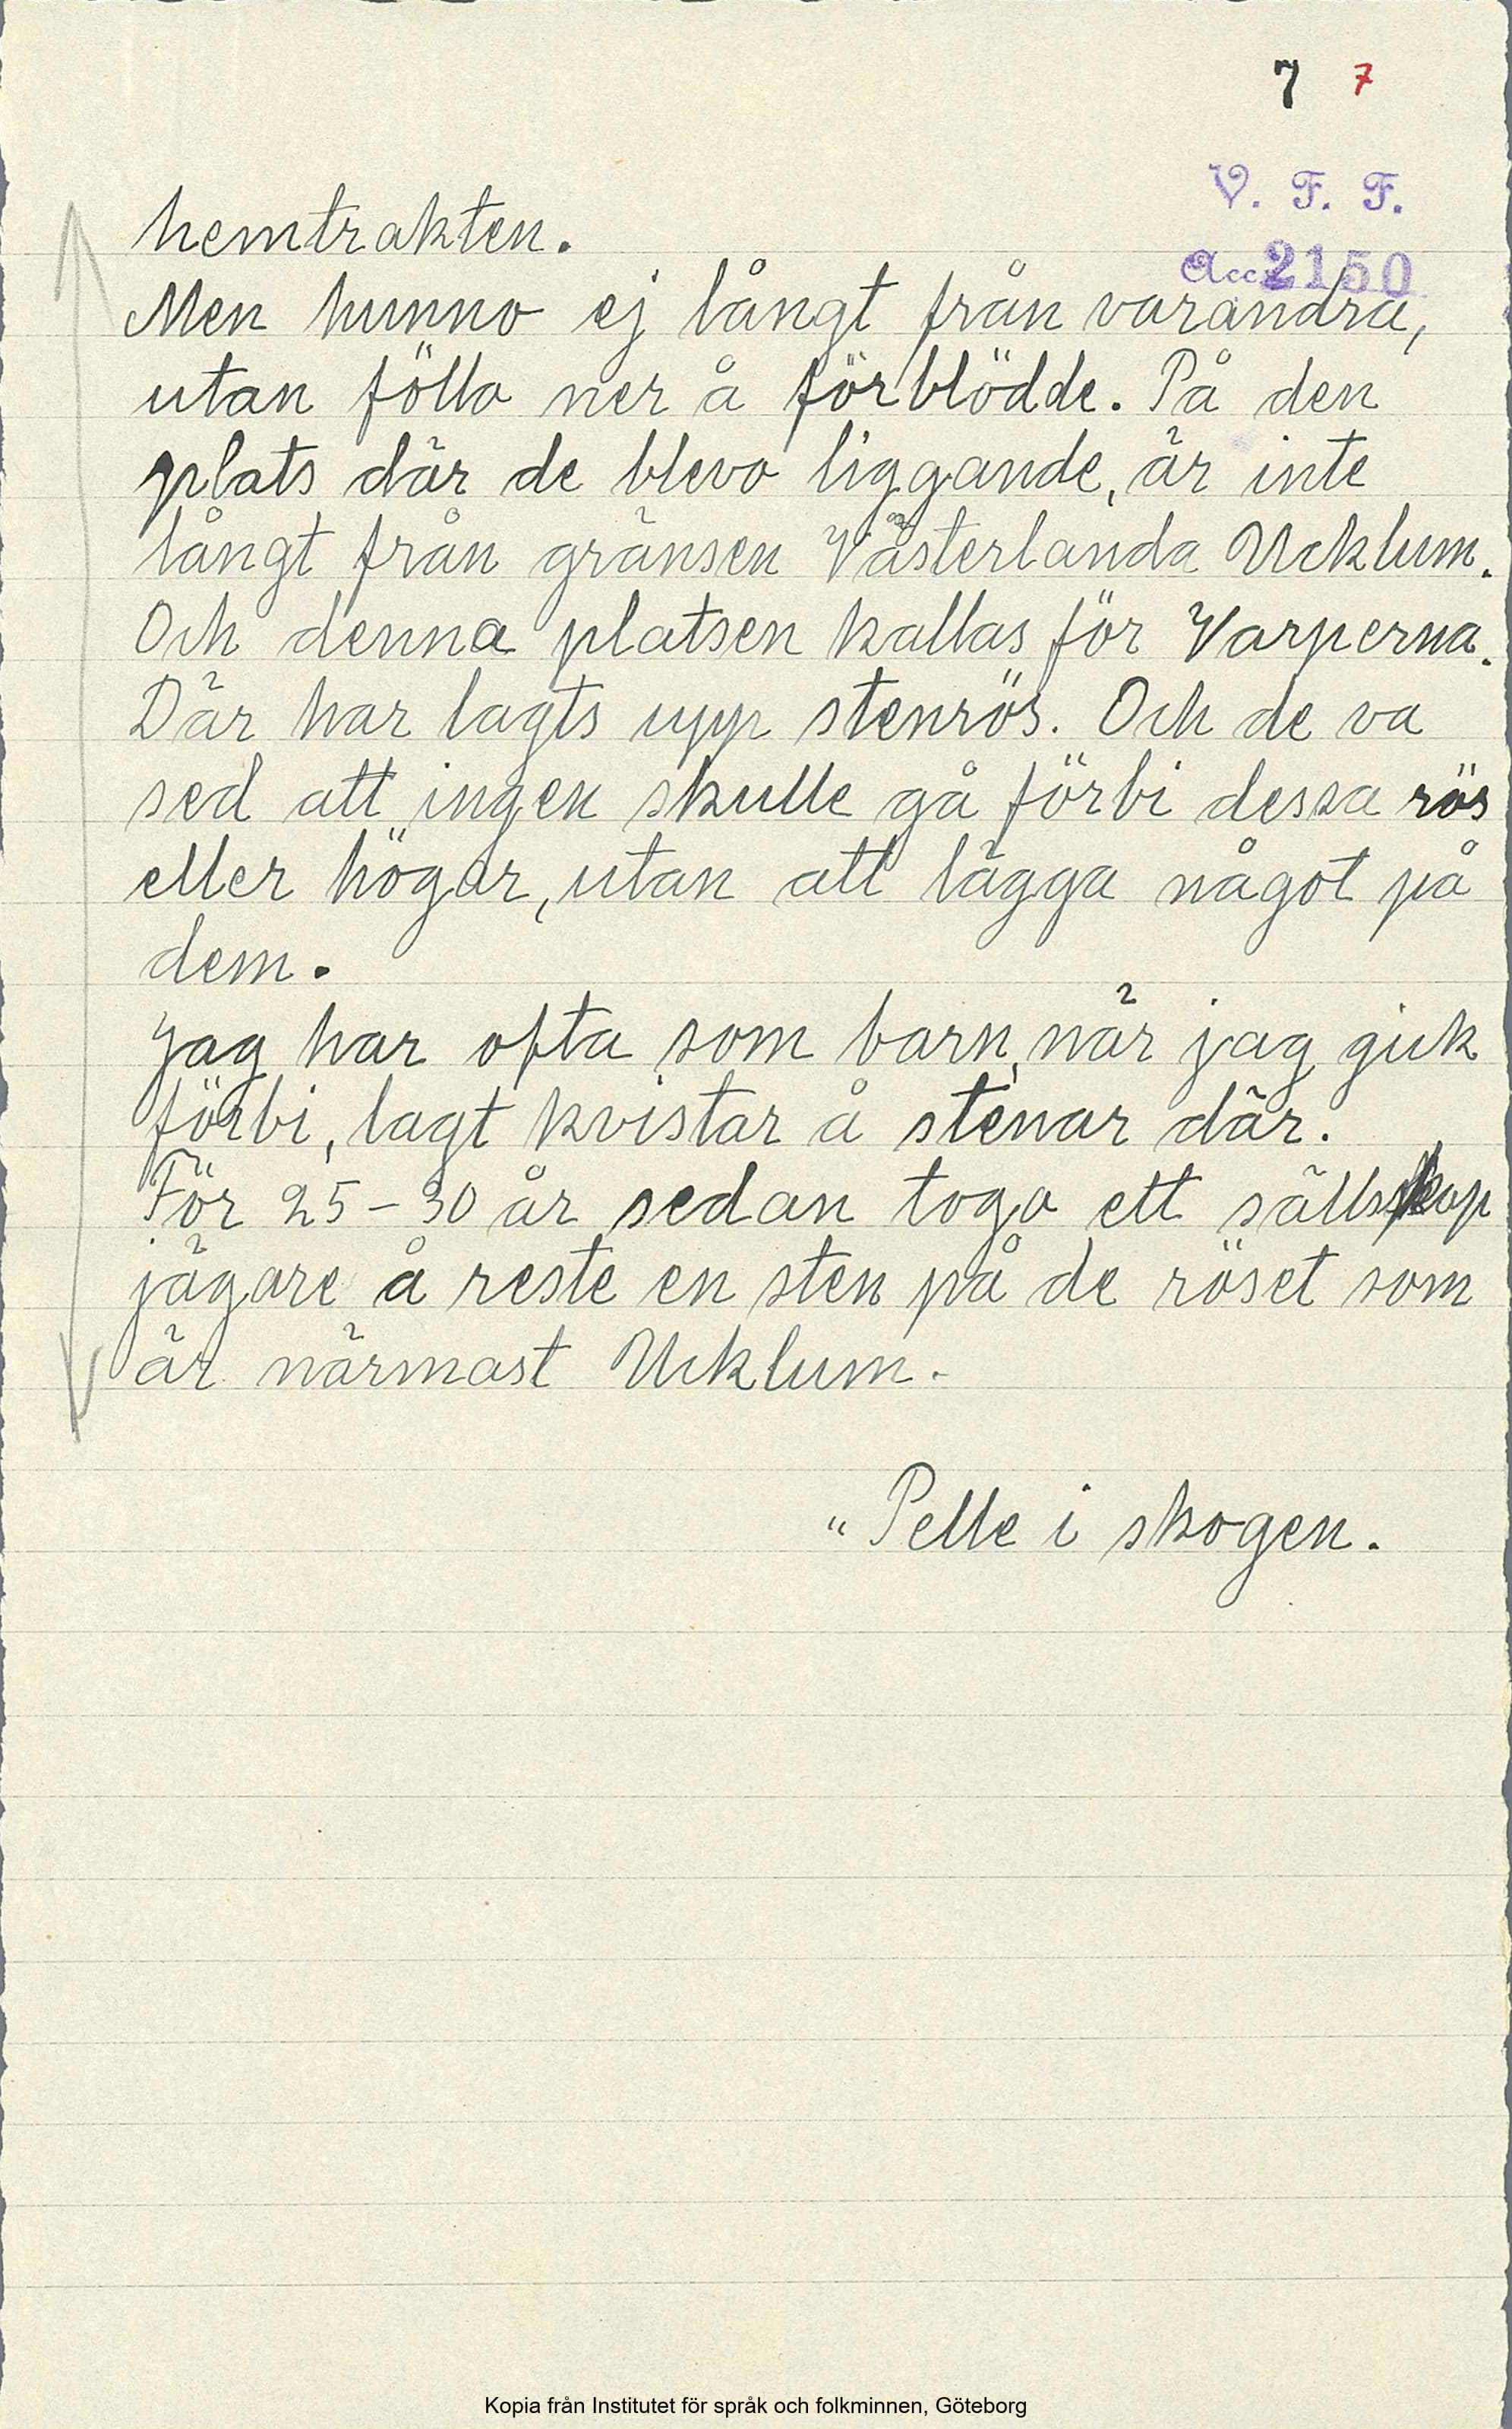 7 7
V. F. F.
Acc 2150
hemtrakten.
Men hunno ej långt från varandra,
utan föllo ner å förblödde. På den
plats där de blevo liggande, är inte
långt från gränsen Västerlanda Ucklum.
Och denna platsen kallas för Varperna.
Där har lagts upp stenrös. Och de va
sed att ingen skulle gå förbi dessa rös
eller högar, utan att lägga något på
dem.
Jag har ofta som barn, när jag gick
förbi, lagt kvistar å stenar där.
För 25-30 år sedan togo ett sällskap
jägare å reste en sten på de röset som
är närmast Ucklum.
"Pelle i skogen.
Kopia från Institutet för språk och folkminnen, Göteborg